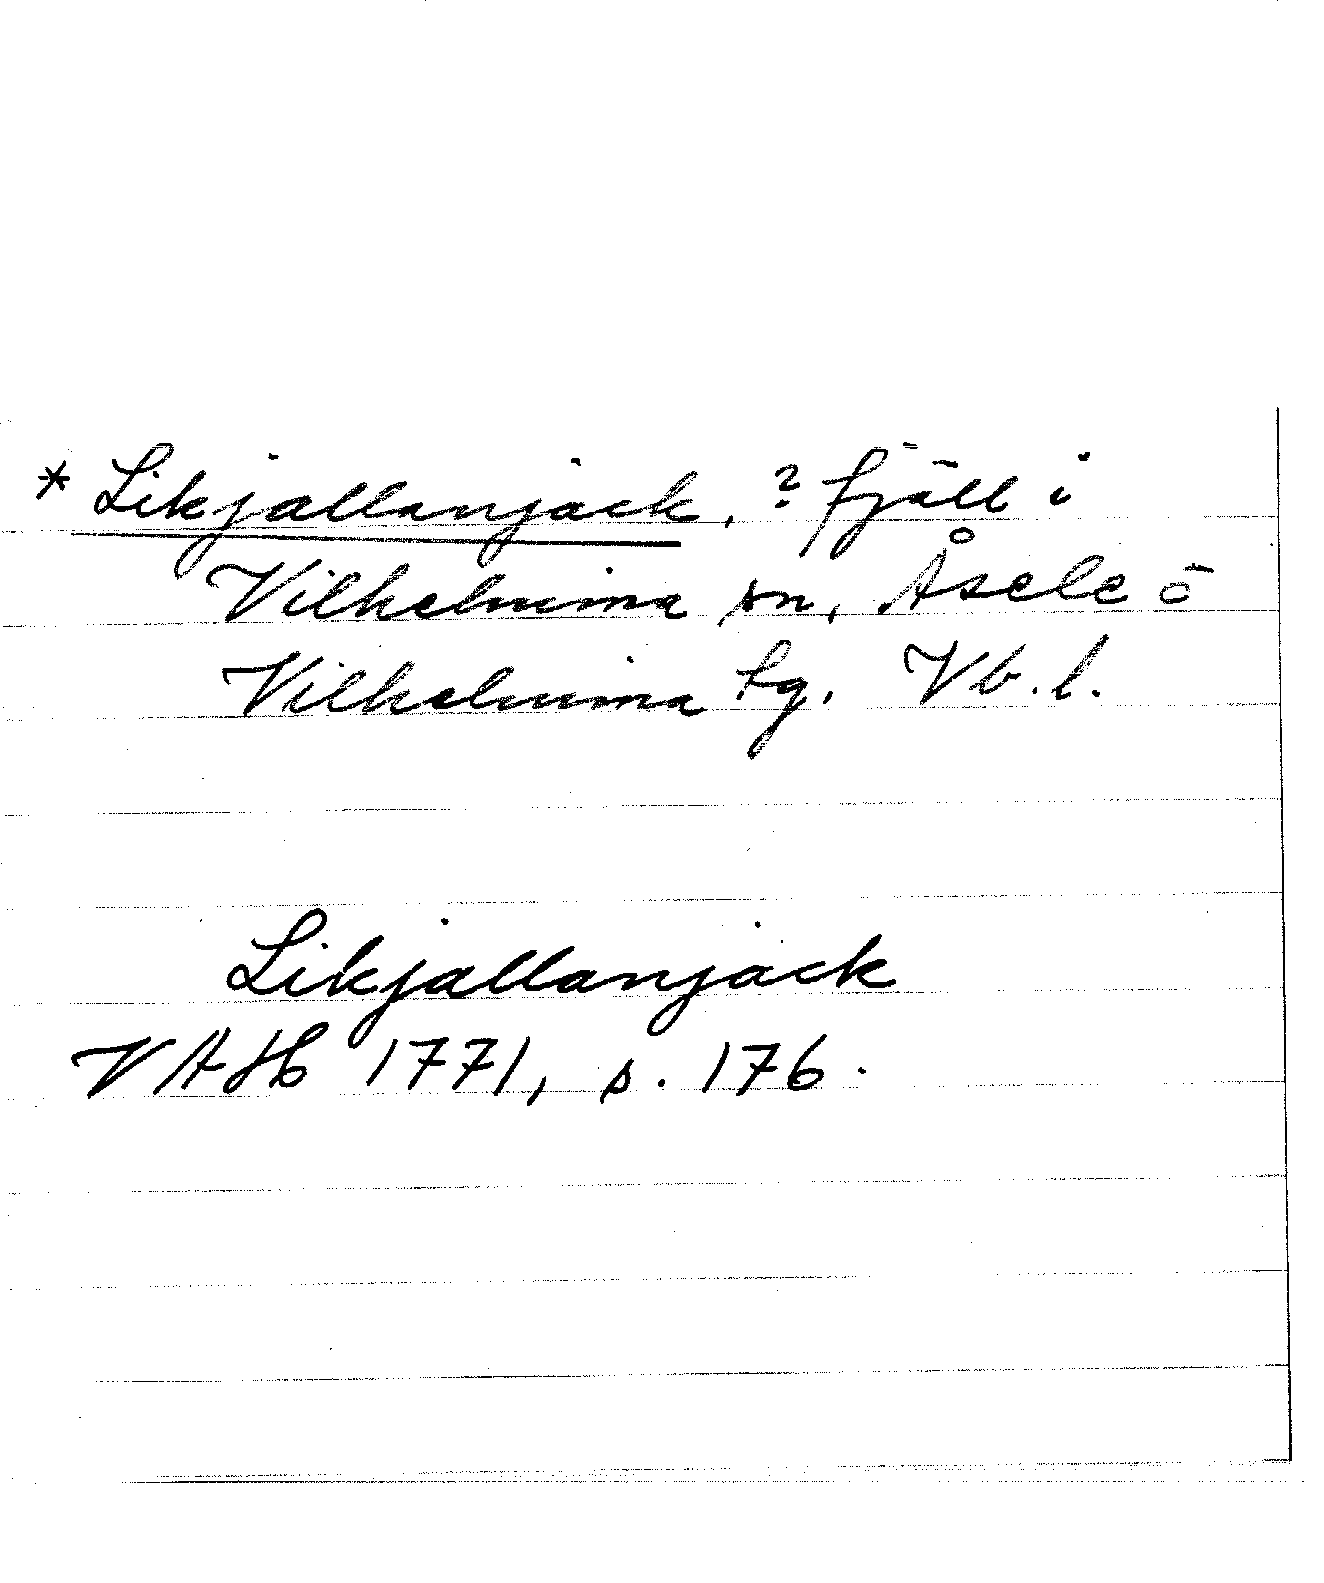 * Likjallanjack, ? fjäll i
Vilhelmina sn, Åsele o
Vilhelmina tg. Vb. l.
Likjallanjack
VAH 1771, s. 176.